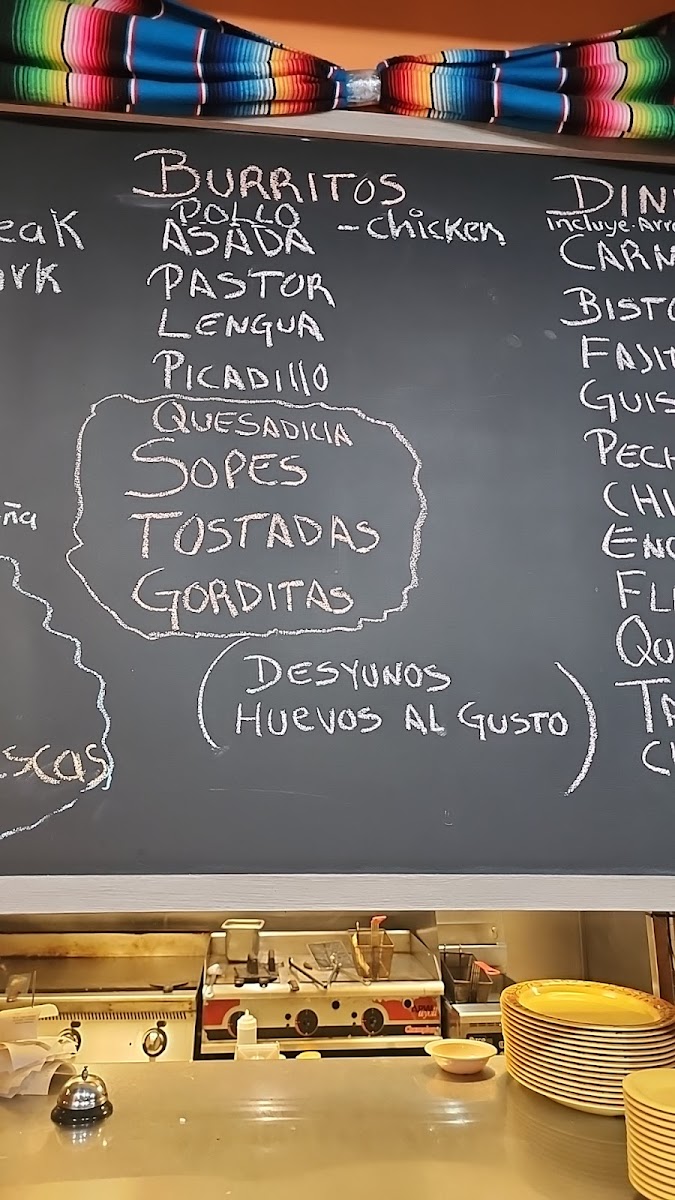 BURRITOS
POLLO
ASADA - chicken
PASTOR
LENGUA
PICADIllO
QUESADICIA
SOPES
TOSTADAS
GORDITAS
(DESYUNOS
HUEVOS AL GUSTO)
eak
rk
ña
scas
DIN
incluye. Arro
CARN
BISTO
FAJIT
GUIS
PECH
CHI
ENC
FL
QU
TA
C